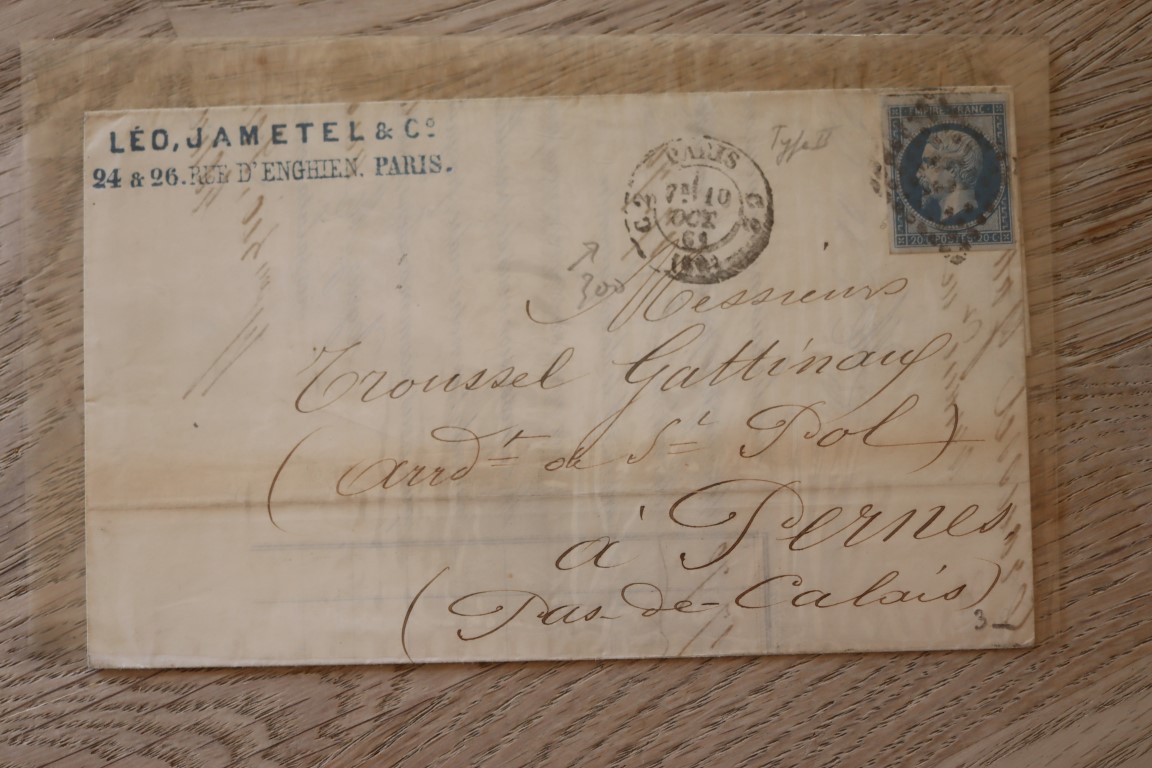 LÉO, JAMETEL & Cº
24 & 26. RUE D'ENGHIEN. PARIS.
PARIS
10
OCT
61
(60)
Type II
EMPIRE FRANC
20 C POSTES 20 C
300
Messieurs
Troussel Gattinaux
(arrdt de St Pol)
à Pernes
(Pas-de-Calais)
3